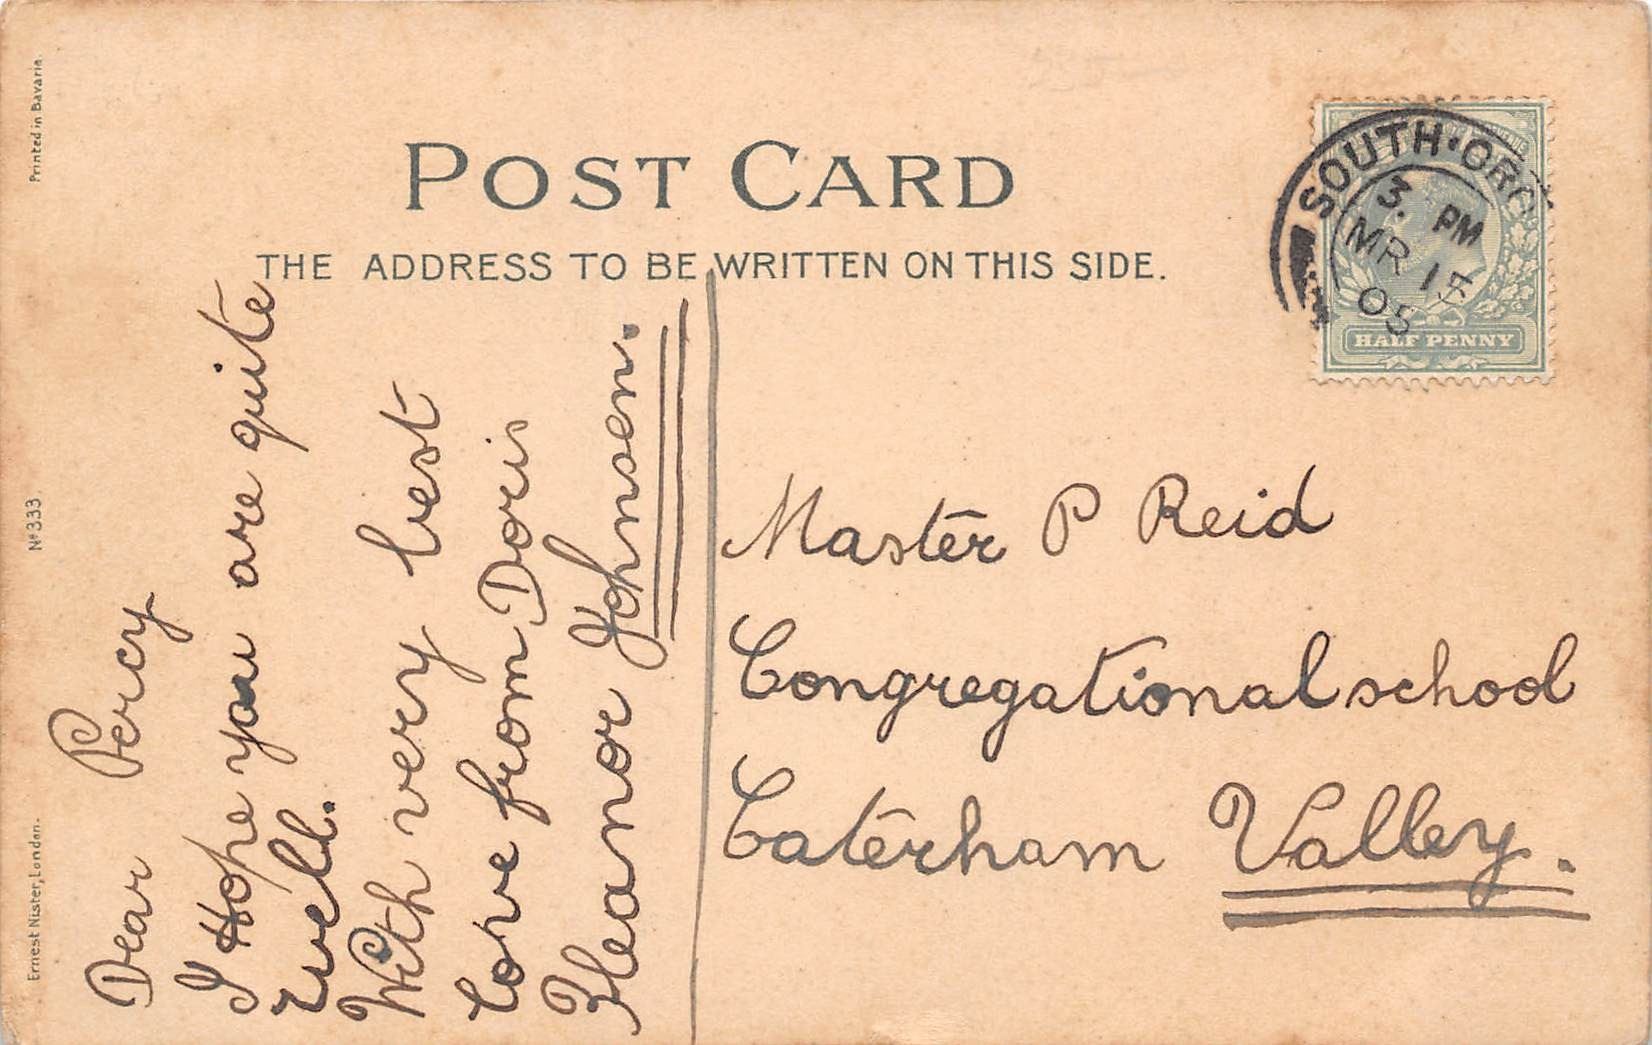 POST CARD
THE ADDRESS TO BE WRITTEN ON THIS SIDE.
Printed in Bavaria.
Nº 333
Ernest Nister, London.
Dear Percy
I Hope you are quite
well.
With very best
love from Doris
Eleanor Johnsen.
SOUTH·CRO
3. PM
MR 15
05
HALF PENNY
Master P Reid
Congregational school
Caterham Valley.